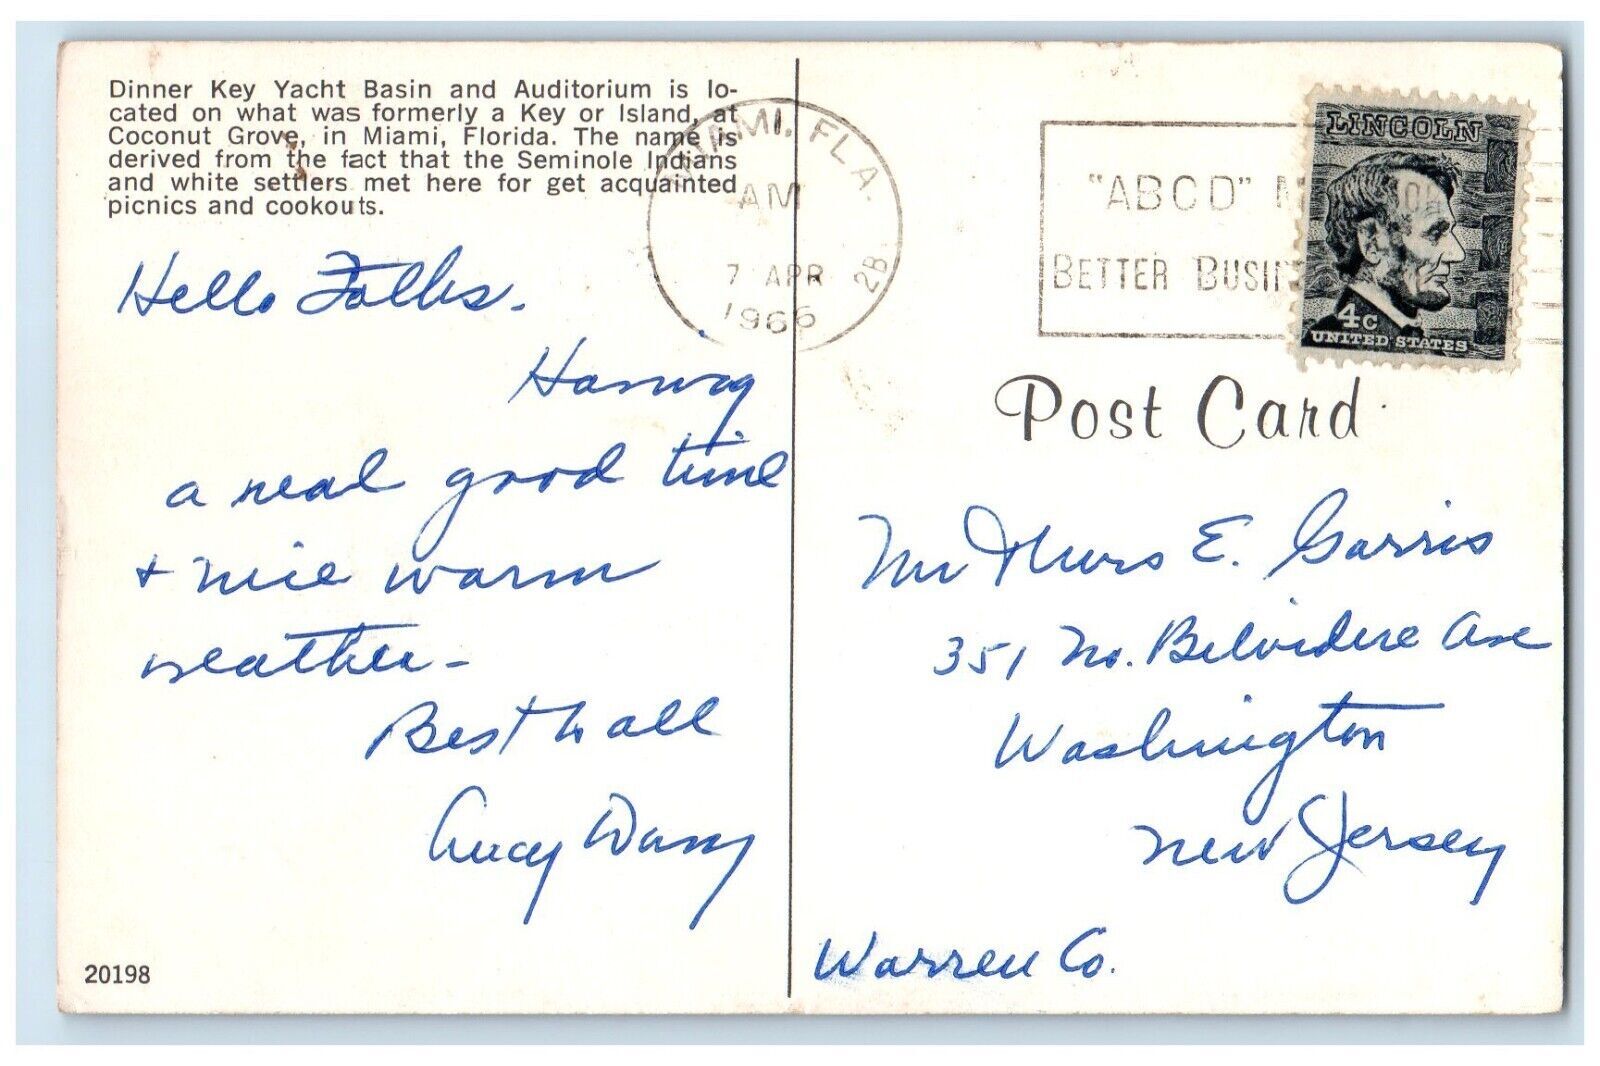 Dinner Key Yacht Basin and Auditorium is lo-
cated on what was formerly a Key or Island, at
Coconut Grove, in Miami, Florida. The name is
derived from the fact that the Seminole Indians
and white settlers met here for get acquainted
picnics and cookouts.
MIAMI, FLA.
AM
7 APR
1966
2B
"ABCD"
BETTER
LINCOLN
4c
UNITED STATES
Post Card
Hello Folks.
a real good time
+ nice warm
weather-
Best to all
Mr &
E. Garris
351 No. Belvidere Ave
Washington
New Jersey
Warren Co.
20198